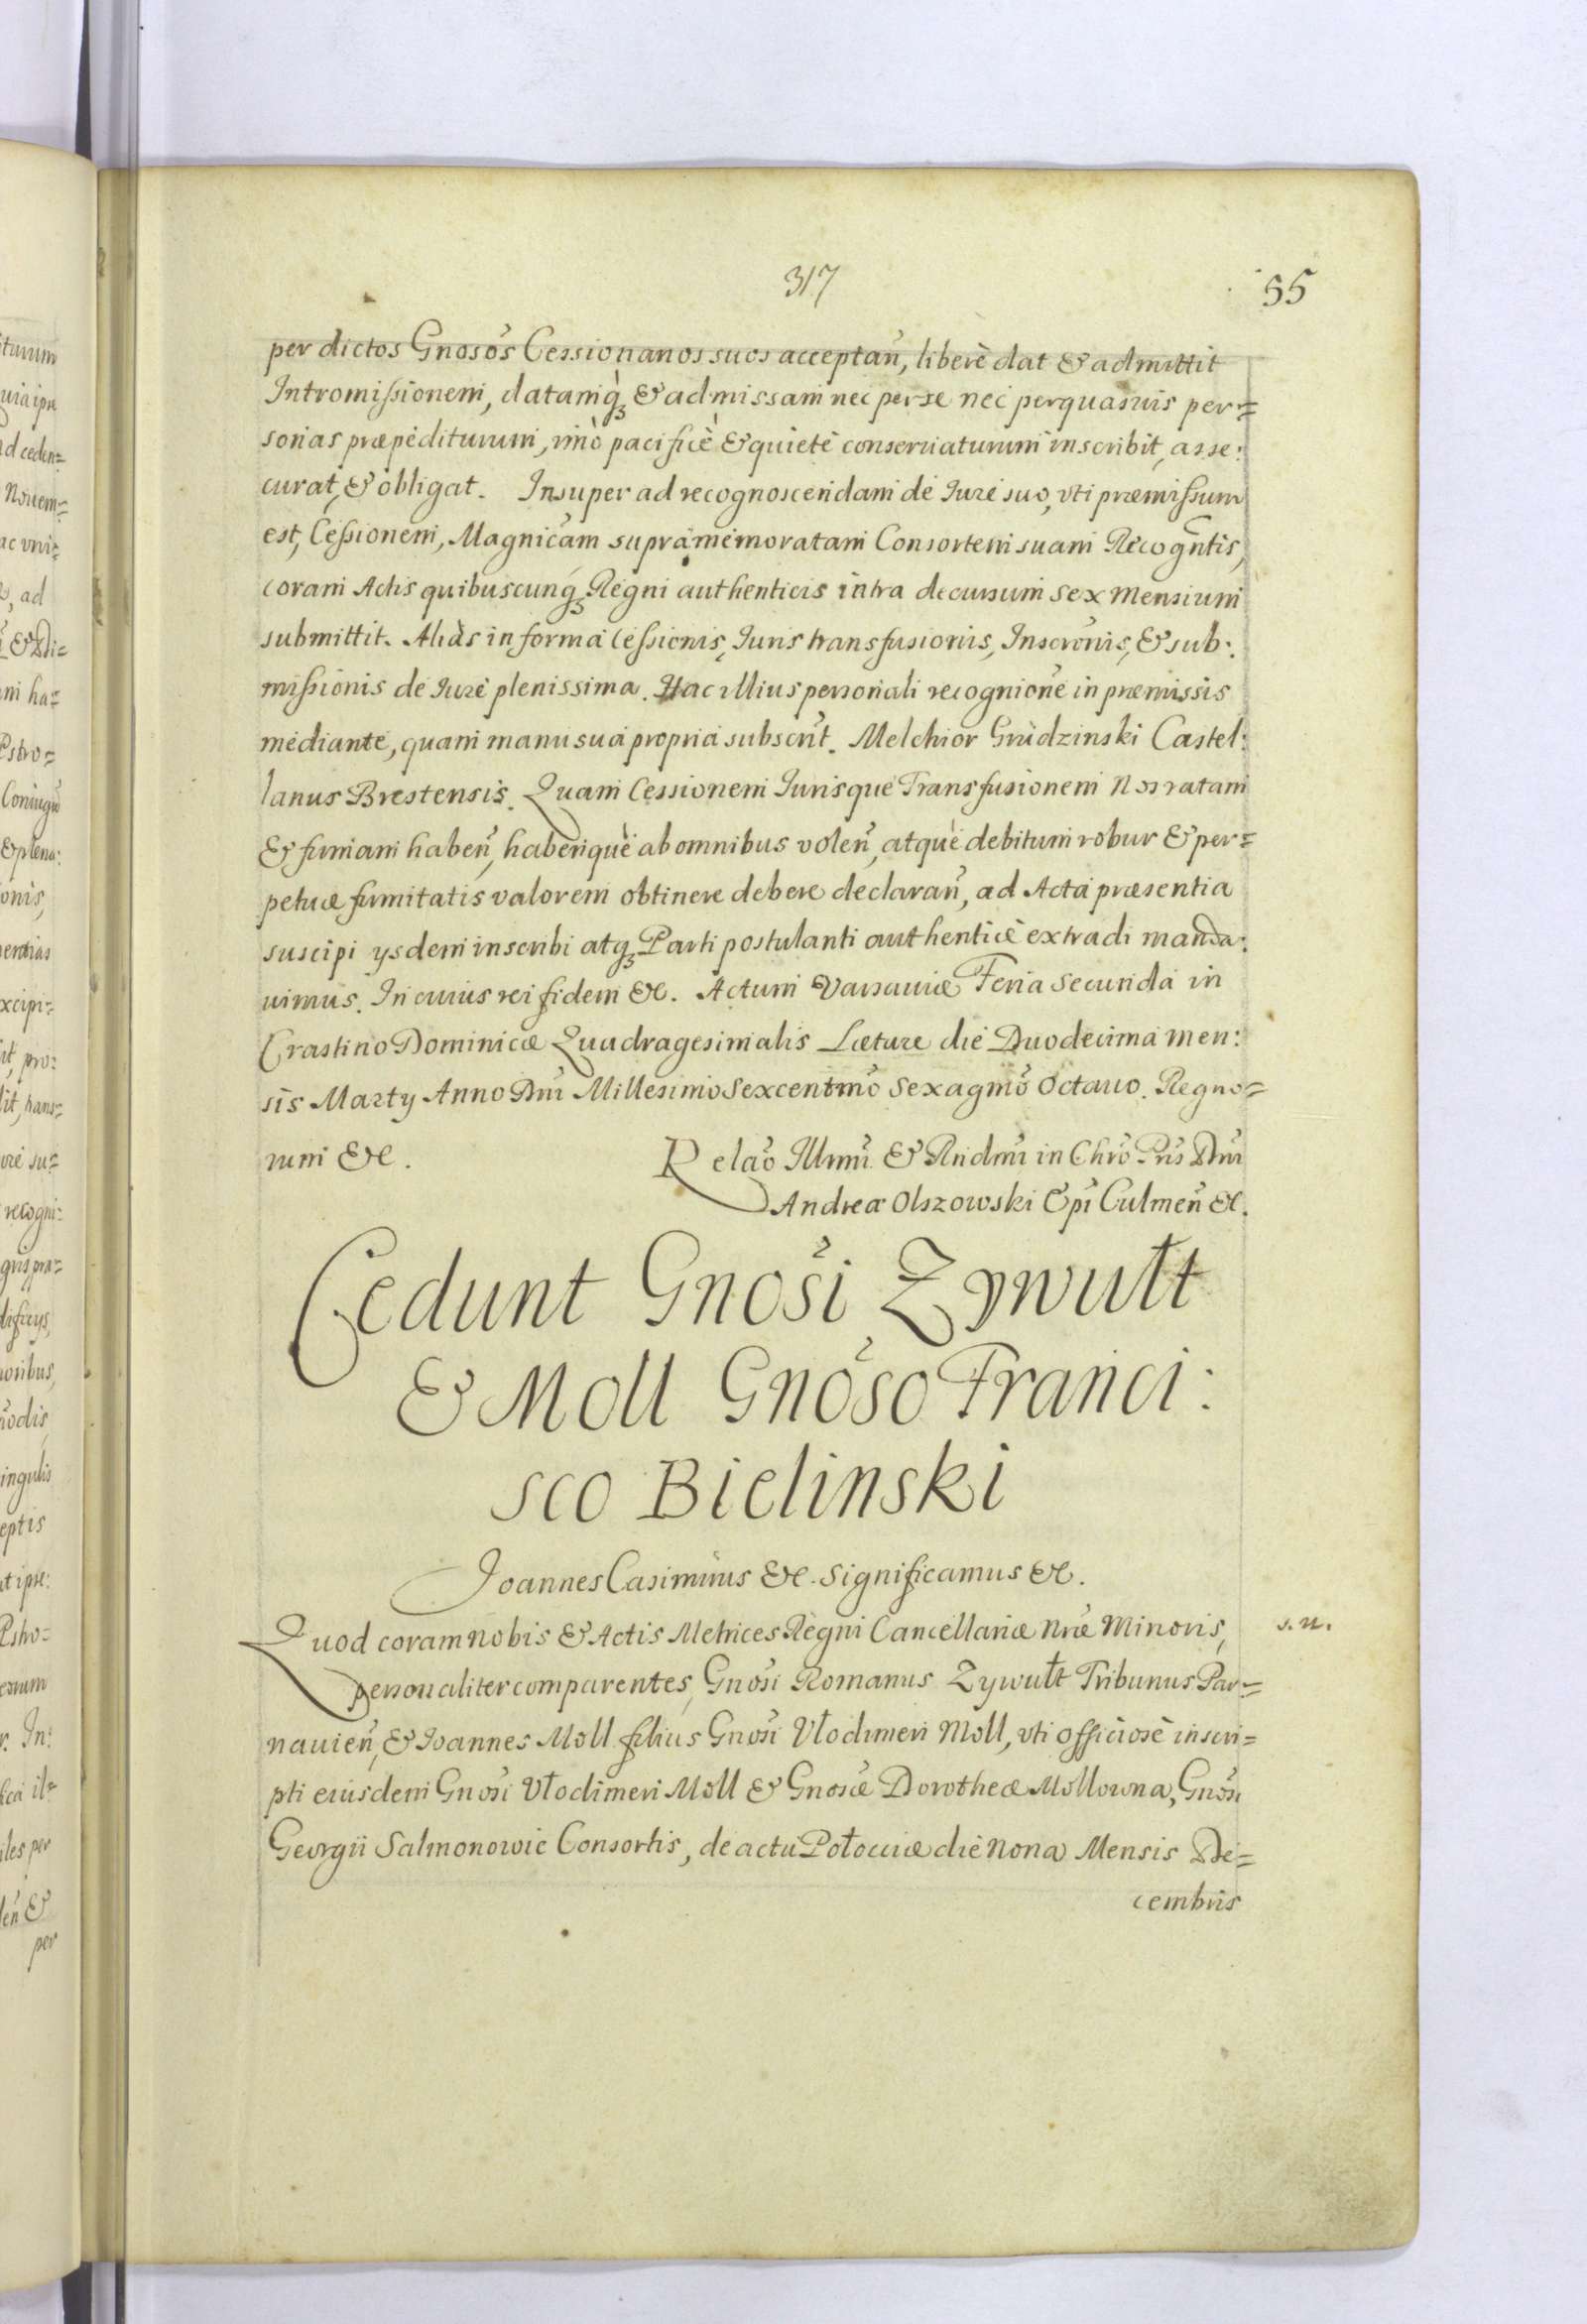 317
55
per dictos Gnosos Cessionarios suos acceptan̄, liberè dat & admittit
Intromissionem, datamq́ꝫ & admissam nec per se nec per quasuis per=
sonas præpediturum, imò pacificè & quietè conseruaturum inscribit, asse:
curat, & obligat. Insuper ad recognoscendam de Iure suo, vti præmissum
est, Cessionem, Magnicam supramemoratam Consortem suam Recogn̄tis,
coram Actis quibuscunq́ꝫ Regni authenticis intra decursum sex Mensium
submittit. Aliàs in forma Cessionis, Iuris transfusionis, Inscrōnis, & sub:
missionis de Iure plenissima. Hac illius personali recognione in præmissis
mediante, quam manu sua propria subscrit. Melchior Grudzinski Castel:
lanus Brestensis. Quam Cessionem Iurisque Transfusionem Nos ratam
& firmam haben̄, haberiquè ab omnibus volen̄, atquè debitum robur & per=
petuæ firmitatis valorem obtinere debere declaran̄, ad Acta præsentia
suscipi ysdem inscribi atqꝫ Parti postulanti authenticè extradi manda:
uimus. In cuius rei fidem &c. Actum Varsauiæ Feria Secunda in
Crastino Dominicæ Quadragesimalis Lætare die Duodecima men:
sis Marty Anno Dn̄i Millesimo Sexcentmō Sexagmō Octauo. Regno=
rum &c.
Relaō Illmī & Rndmī in Chrō Pris Dn̄i
Andreæ Olszowski Ep̄i Culmen̄ &c.
Cedunt Gnosi Zywułt
& Moll Gnoso Franci:
sco Bielinski
Joannes Casimirus &c. Significamus &c.
Quod coram nobis & Actis Metrices Regni Cancellariæ nr̄æ Minoris,
s. n.
personaliter comparentes, Gnosi Romanus Zywułt Tribunus Par=
nauien̄, & Ioannes Moll filius Gnosi Vłodimeri Moll, vti officiosè inscri=
pti eiusdem Gnosi Vłodimeri Moll & Gnosæ Dorotheæ Mollowna, Gnosi
Georgii Salmonowic Consortis, de actu Połociæ die nona Mensis De=
cembris